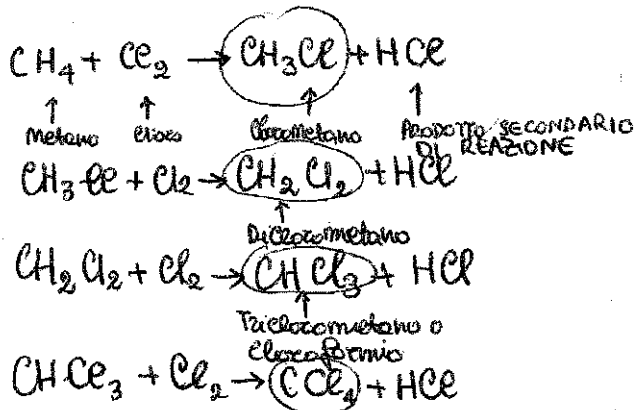 CH4 + Cl2 → CH3Cl + HCl
↑ ↑ ↑ ↑
Metano Cloro Clorometano PRODOTTO SECONDARIO
DI REAZIONE
CH3Cl + Cl2 → CH2Cl2 + HCl
↑
Diclorometano
CH2Cl2 + Cl2 → CHCl3 + HCl
↑
Triclorometano o
Cloroformio
CHCl3 + Cl2 → CCl4 + HCl